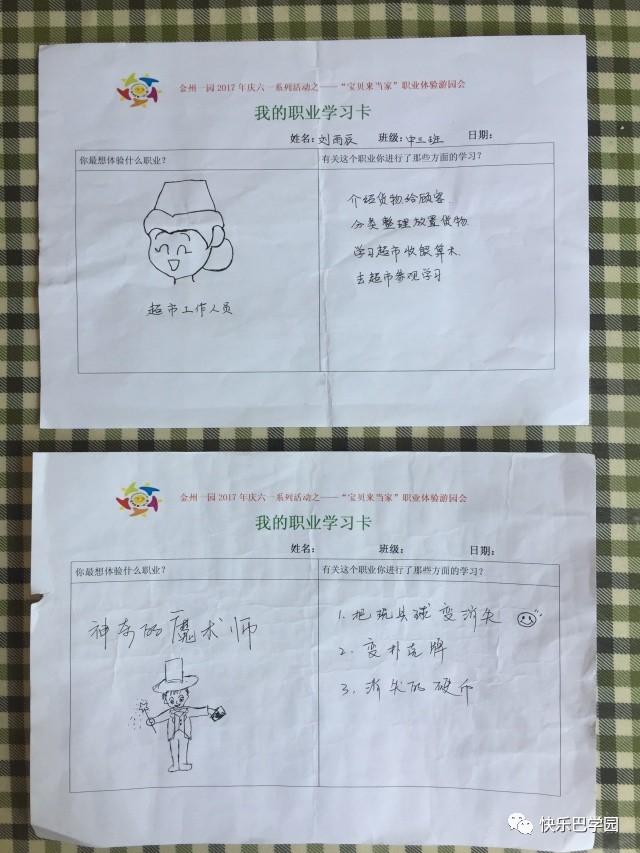 金州一园2017年庆六一系列活动之——“宝贝来当家”职业体验游园会
我的职业学习卡
姓名：刘雨辰 班级：中三班 日期：
你最想体验什么职业？
有关这个职业你进行了那些方面的学习？
超市工作人员
介绍货物给顾客
分类整理放置货物
学习超市收银算术
去超市参观学习
金州一园2017年庆六一系列活动之——“宝贝来当家”职业体验游园会
我的职业学习卡
姓名： 班级： 日期：
你最想体验什么职业？
有关这个职业你进行了那些方面的学习？
神奇的魔术师
1. 把玩具球变消失
2. 变扑克牌
3. 消失的硬币
快乐巴学园